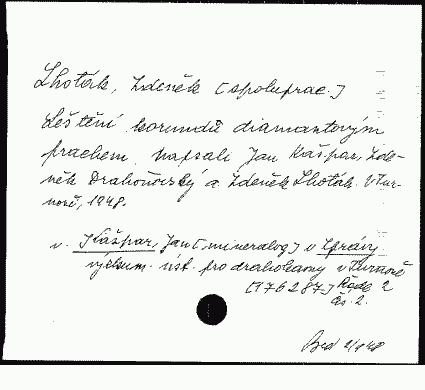 Lhoták, Zdeněk [spoluprac.]
Leštění korundů diamantovým
prachem. Napsali Jan Kašpar, Zde-
něk Drahoňovský a Zdeněk Lhoták. V Tur-
nově, 1948.
v. Kašpar, Jan [mineralog] v Zprávy
výzkum. úst. pro drahokamy v Turnově
[976287] Řada 2
čs. 2.